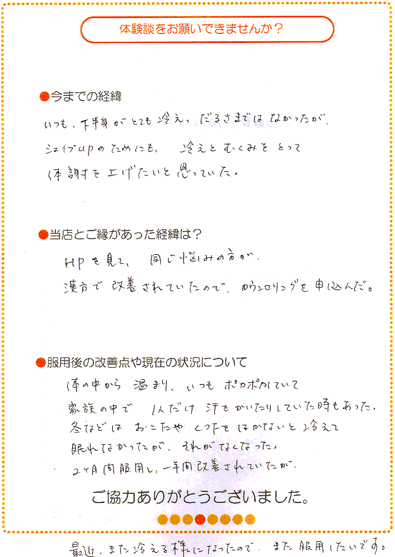 体験談をお願いできませんか？
●今までの経緯
いつも、下半身がとても冷え、だるさまではなかったが、
シェイプupのためにも、冷えとむくみをとって
体調を上げたいと思っていた。
●当店とご縁があった経緯は？
HPを見て、同じ悩みの方が、
漢方で改善されていたので、カウンセリングを申込んだ。
●服用後の改善点や現在の状況について
体の中から温まり、いつもポカポカしていて
家族の中で1人だけ汗をかいたりしていた時もあった。
冬などはおこたやくつ下をはかないと冷えて
眠れなかったが、それがなくなった。
2ヶ月間服用し、一年間改善されていたが、
ご協力ありがとうございました。
最近、また冷える様になったので、また服用したいです。